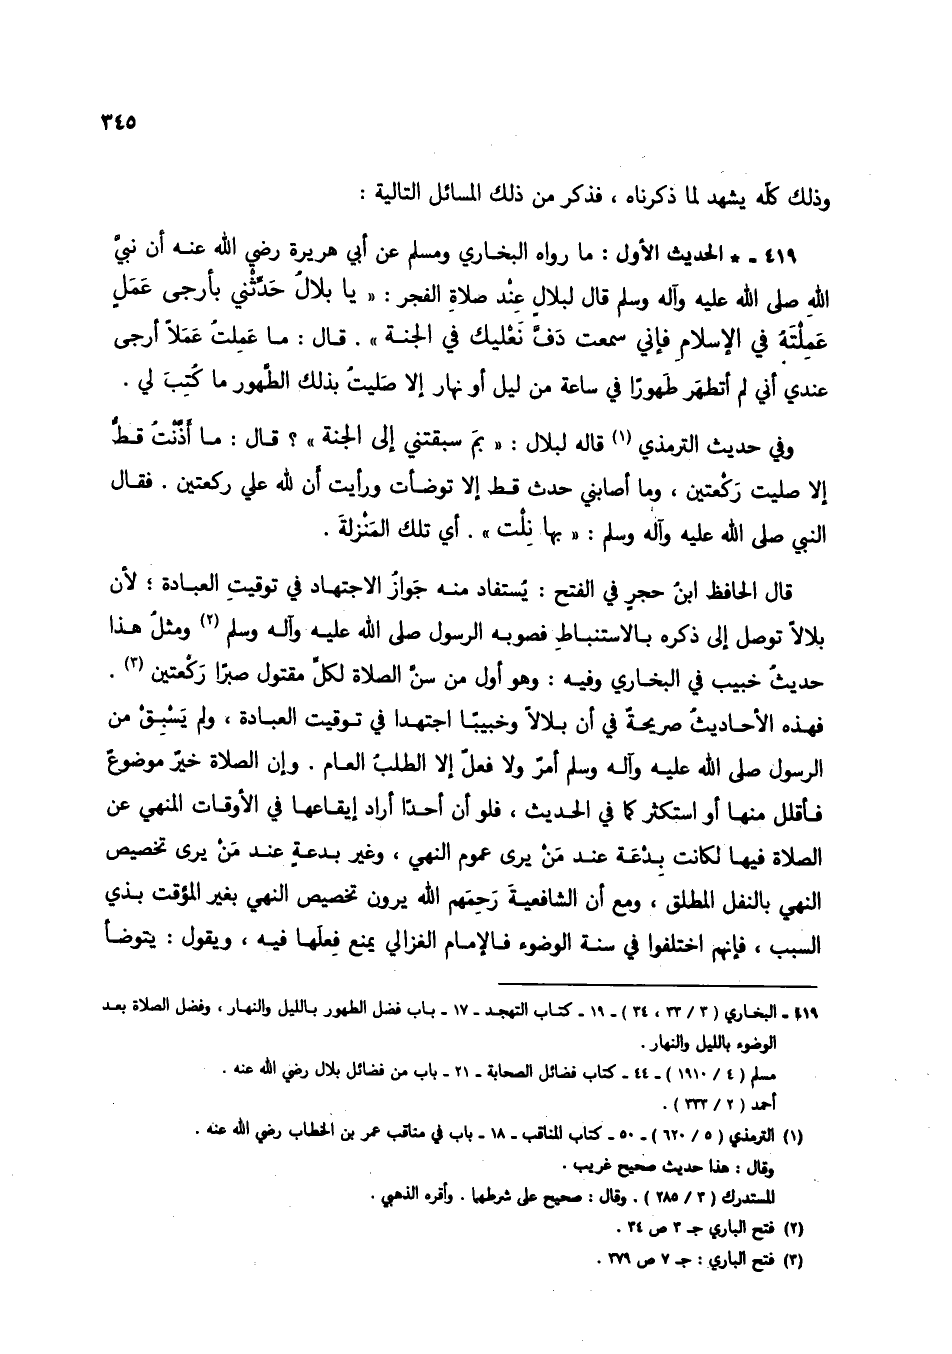 ٣٤٥
وذلك كلّه يشهد لما ذكرناه ، فذكر من ذلك المسائل التالية :
٤١٩ - * الحديث الأول : ما رواه البخاري ومسلم عن أبي هريرة رضي الله عنه أن نبيَّ
الله صلى الله عليه وآله وسلم قال لبلالٍ عِنْد صلاةِ الفجر : « يا بلالُ حَدِّثْني بأرجى عَمَلٍ
عَمِلْتَهُ في الإسلامِ فإني سمعت دَفَّ نَعْليك في الجنة » . قال : ما عَمِلتُ عَمَلاً أرجى
عندي أني لم أتطهَر طَهورًا في ساعة من ليل أو نهار إلا صَليتُ بذلك الطَّهور ما كُتِبَ لي .
وفي حديث الترمذي (١) قاله لبلال : « بِمَ سبقتني إلى الجنة » ؟ قال : ما أَذَّنْتُ قطُّ
إلا صليت رَكْعتين ، وما أصابني حدث قط إلا توضأت ورأيت أن لله علي ركعتين . فقال
النبي صلى الله عليه وآله وسلم : « بها نِلْت » . أي تلك المَنْزلةَ .
قال الحافظ ابنُ حجرٍ في الفتح : يُستفاد منه جَوازُ الاجتهاد في توقيتِ العبادة ؛ لأن
بلالاً توصل إلى ذكره بالاستنباطِ فصوبه الرسول صلى الله عليه وآله وسلم (٢) ومثلُ هذا
حديثُ خبيب في البخاري وفيه : وهو أول من سنَّ الصلاة لكلِّ مقتول صبرًا رَكْعتين (٣) .
فهذه الأحاديثُ صريحةٌ في أن بلالاً وخبيبًا اجتهدا في توقيت العبادة ، ولم يَسْبِقْ من
الرسول صلى الله عليه وآله وسلم أمرٌ ولا فعلٌ إلا الطلبُ العام . وإن الصلاة خيرٌ موضوعٌ
فأقلل منها أو استكثر كما في الحديث ، فلو أن أحدًا أراد إيقاعها في الأوقات المنهي عن
الصلاة فيها لكانت بِدْعَة عند مَنْ يرى عموم النهي ، وغير بدعةٍ عند مَنْ يرى تخصيص
النهي بالنفل المطلق ، ومع أن الشافعيةَ رَحِمَهم الله يرون تخصيص النهي بغير المؤقت بذي
السبب ، فإنهم اختلفوا في سنة الوضوء فالإمام الغزالي يمنع فعلَها فيه ، ويقول : يتوضأ
٤١٩ - البخاري ( ٣ / ٣٣ ، ٣٤ ) - ١٩ - كتاب التهجد - ١٧ - باب فضل الطهور بالليل والنهار ، وفضل الصلاة بعد
الوضوء بالليل والنهار .
مسلم ( ٤ / ١٩١٠ ) - ٤٤ - كتاب فضائل الصحابة - ٢١ - باب من فضائل بلال رضي الله عنه .
أحمد ( ٢ / ٣٣٣ ) .
(١) الترمذي ( ٥ / ٦٢٠ ) - ٥٠ - كتاب المناقب - ١٨ - باب في مناقب عمر بن الخطاب رضي الله عنه .
وقال : هذا حديث صحيح غريب .
المستدرك ( ٣ / ٢٨٥ ) . وقال : صحيح على شرطهما . وأقره الذهبي .
(٢) فتح الباري جـ ٣ ص ٣٤ .
(٣) فتح الباري : جـ ٧ ص ٣٧٩ .